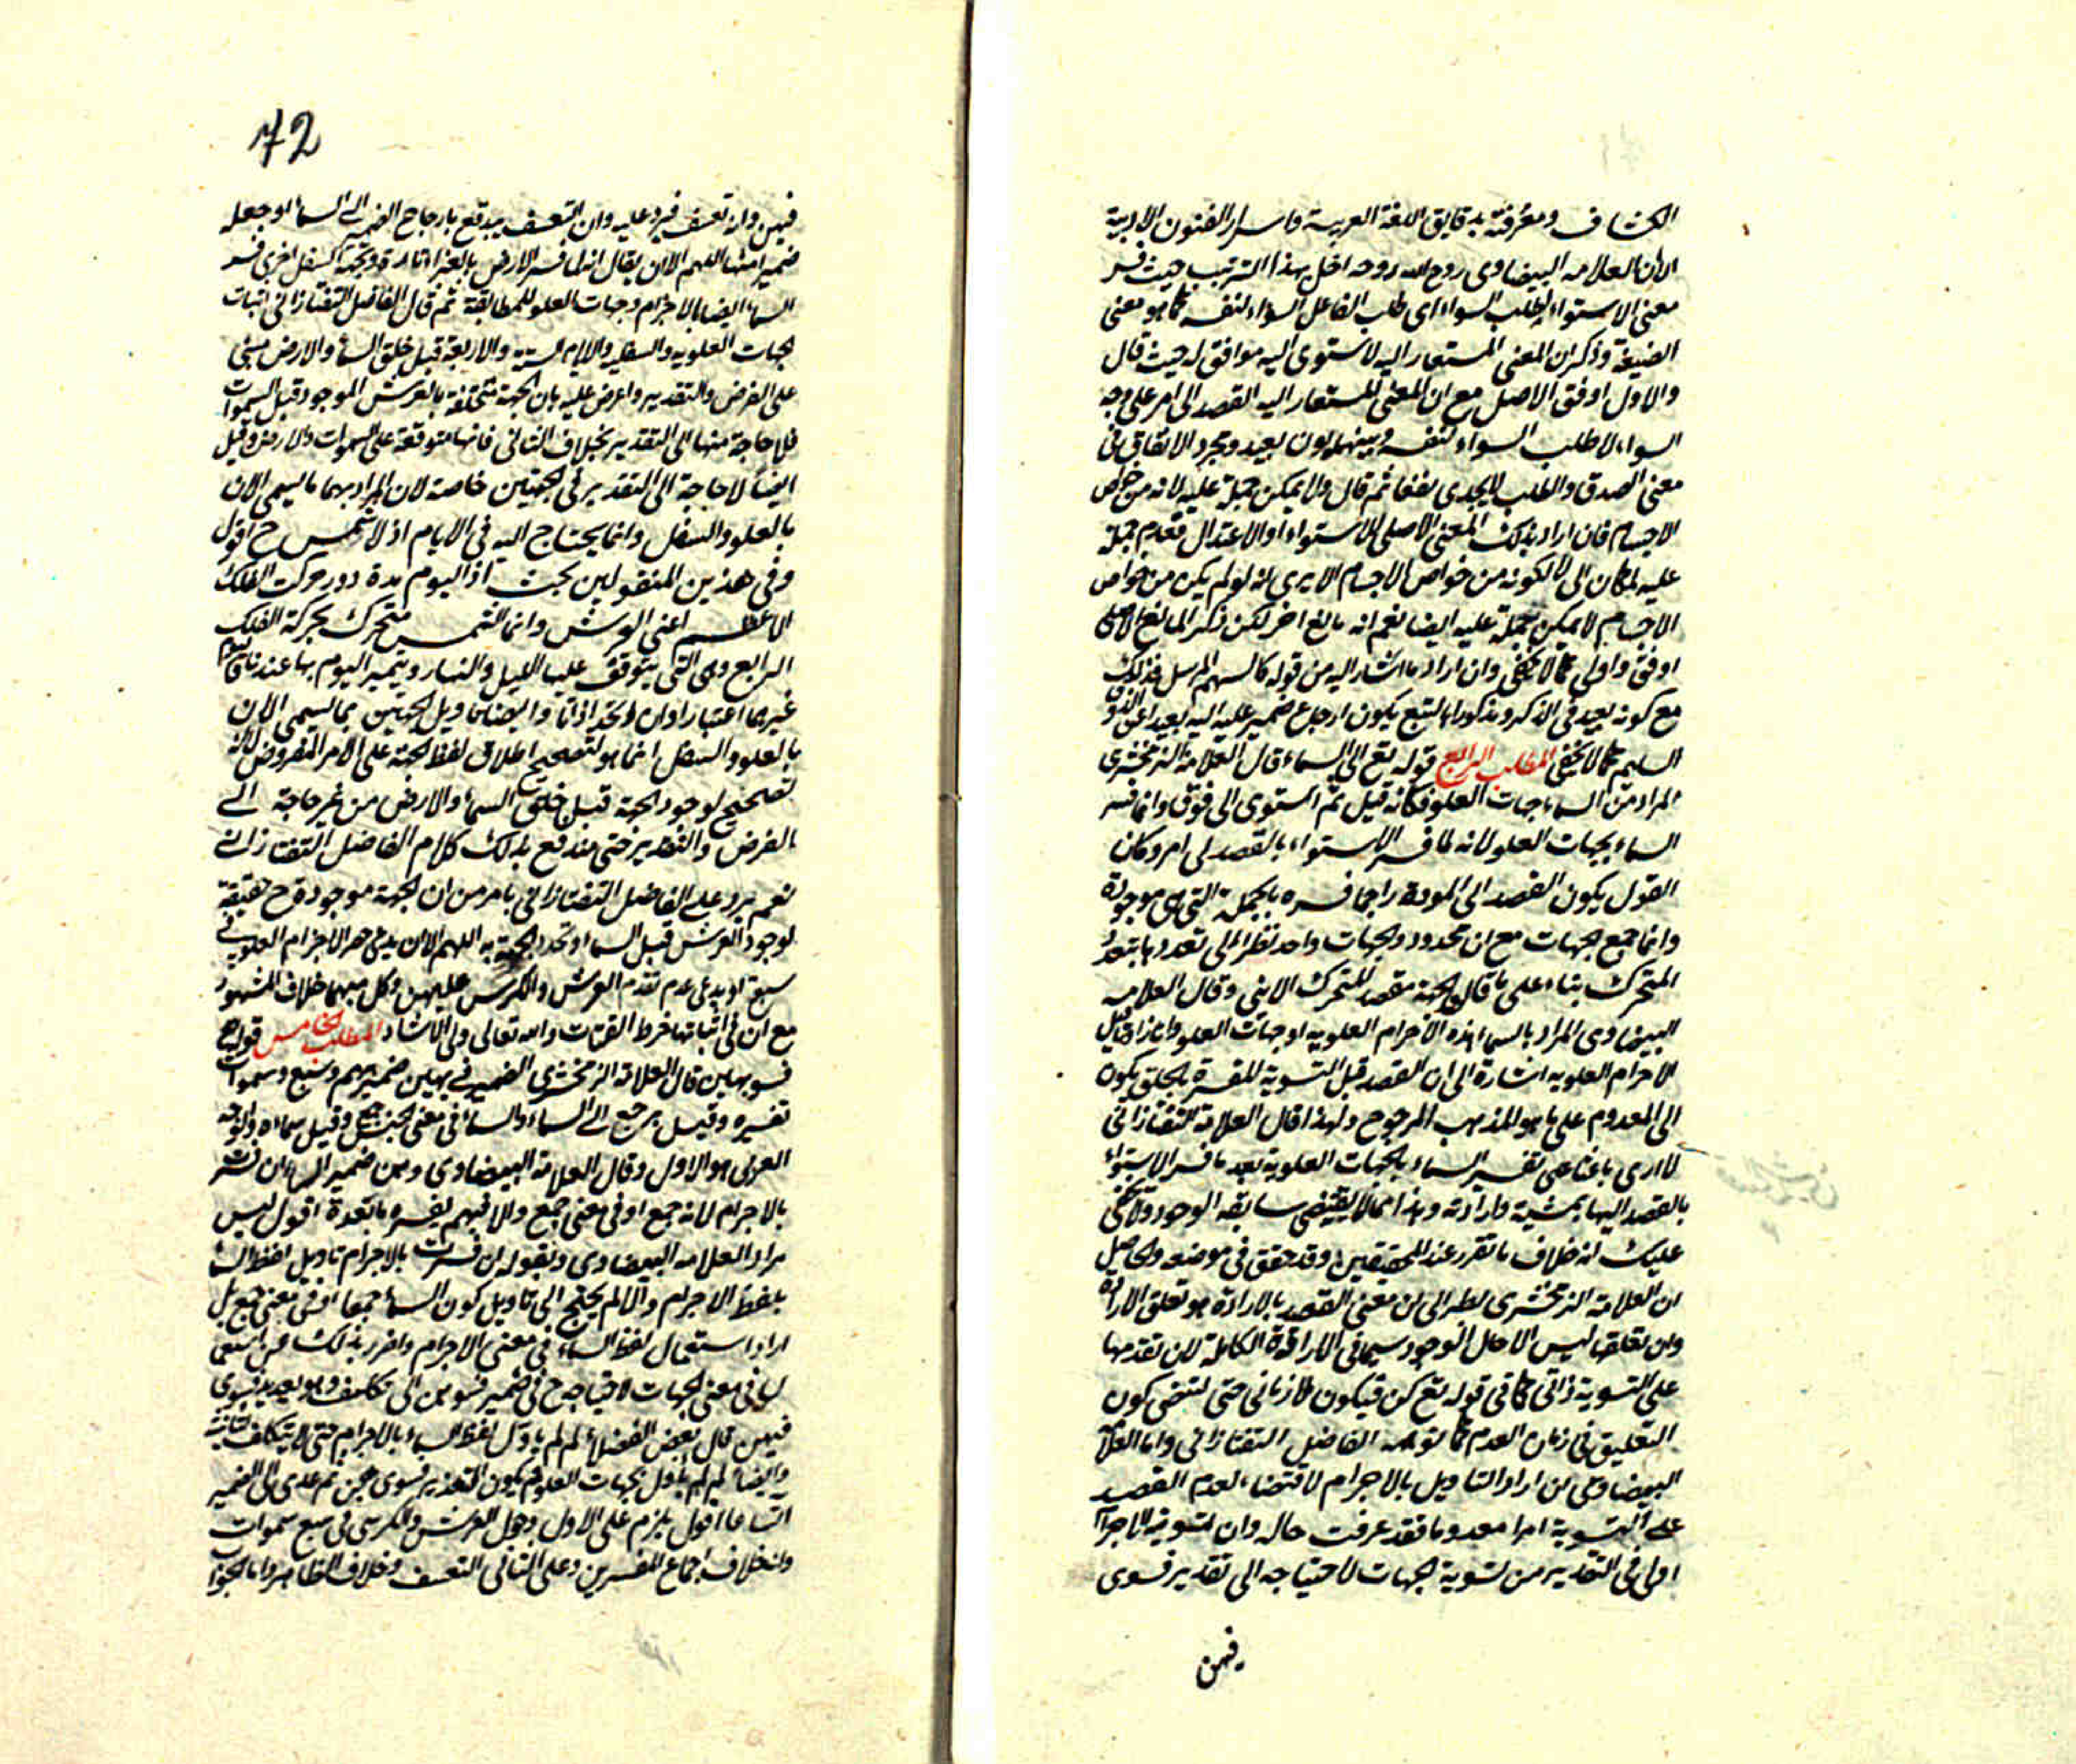 الكشاف ومعرفته بدقايق اللغة العربية واسرار الفنون الادبية
الا ان العلامه البيضاوى روح الله روحه اخل بهذا الترتيب حيث فسر
معنى الاستواء بطلب السواء اى طلب الفاعل السواء لنفسه كما هو معنى
الصيغة وذكر ان المعنى المستعار اليه لاستوى اليه موافق له حيث قال
والاول اوفق الاصل مع ان المعنى المستعار اليه القصد الى امر على وجه
السواء لا طلب السواء لنفسه وبينهما بون بعيد ومجرد الاتفاق فى
معنى الصدق والطلب لا يجدى نفعا ثم قال ولا يمكن حمله عليه لانه من خواص
الاجسام فان اراد بذلك المعنى الاصلى للاستواء او الاعتدال فعدم حمله
عليه لمكان الى لا لكونه من خواص الاجسام الا يرى انه لو لم يكن من خواص
الاجسام لا يمكن حمله عليه ايضا نعم انه مانع اخر لكن ذكر المانع الاصلى
اوفق واولى كما لا يخفى وان اراد ما اشار اليه من قوله كالسهم المرسل فذلك
مع كونه بعيد فى الذكر ومذكورا بالتبع يكون ارجاع ضمير عليه اليه بعيدا عن الذوق
السليم كما لا يخفى المطلب الرابع قوله تع الى السماء قال العلامة الزمخشرى
المراد من السماء جهات العلو فكانه قيل ثم استوى الى فوق وانما فسر
السماء بجهات العلو لانه لما فسر الاستواء بالقصد الى امر وكان
القول بكون القصد الى الموجود راجحا فسره بالجهة التى هى موجودة
وانما جمع الجهات مع ان محدود الجهات واحد نظرا الى تعددها بتعدد
المتحرك بناء على ما قالو الجهة مقصد للمتحرك الاينى وقال العلامه
البيضاوى المراد بالسماء هذه الاجرام العلويه او جهات العلو وانما زاد قيل
الاجرام العلويه اشارة الى ان القصد قبل التسوية المفسرة بالخلق يكون
الى المعدوم على ما هو المذهب المرجوح ولهذا قال العلامة التفتازانى
لا ارى باعثا على تفسير السماء بالجهات العلوية بعد ما فسر الاستواء
بالقصد اليها بمشية وارادته وهذا مما لا يقتضى سابقه الوجود ولا يخفى
عليك انه خلاف ما تقرر عند المحققين وقد حقق فى موضعه والحاصل
ان العلامة الزمخشرى نظر الى ان معنى القصد بالارادة هو تعلق الارادة
وان تعلقها ليس الا حال الوجود سيما فى الارادة الكاملة لان تقدمها
على التسوية ذاتى كما فى قوله تع كن فيكون لا زمانى حتى لتقتضى كون
التعليق فى زمان العدم كما توهمه الفاضل التفتازانى واما العلامة
البيضاوى لن اراد التاويل بالاجرام لاقتضاء لعدم القصد
على التسوية امرا معدوما فقد عرفت حاله وان تسوية الاجرام
اولى فى التقدير من تسوية الجهات لاحتياجه الى تقدير فسوى
فهن
72
فيهن وان تعسف فيرد عليه وان التعسف يندفع بارجاع الضمير الى السماء او جعله
ضميرا مبهما اللهم الا ان يقال انه لما فسر الارض بالغبراء تارة وبجهة السفل اخرى فسر
السماء ايضا بالاجرام وجهات العلو للمطابقة ثم قال الفاضل التفتازانى اثبات
الجهات العلويه والسفليه والايام الستة والاربعة قبل خلق السماء والارض مبنى
على الفرض والتقدير واعرض عليه بان الجهة متحققة بالعرش الموجود قبل السموات
فلا حاجة منها الى التقدير بخلاف الثانى فانها متوقفة على السموات والارض وقيل
ايضا لا حاجة الى التقدير فى الجهتين خاصة لان المراد بهما ما يسمى الان
بالعلو والسفل وانما يحتاج اليه فى الايام اذ لا شمس ح اقول
وفى هذين المنقولين بحث اذ اليوم مدة دور حركت الفلك
الاعظم اعنى العرش وانما الشمس متحرك بحركة الفلك
الرابع وهى التى يتوقف عليها الليل والنهار ويتميز اليوم بها عندنا
غيرهما اعتبارا وان اتحد اذاتا وايضا تاويل الجهتين بما يسمى الان
بالعلو والسفل انما هو لتصحيح اطلاق لفظ الجهة على الامر المفروض لا
تصحيح لوجود الجهة قبل خلق السماء والارض من غير حاجة الى
الفرض والتقدير حتى يندفع بذلك كلام الفاضل التفتازانى
نعم يرد على الفاضل التفتازانى ما مر من ان الجهة موجود ح حقيقة
لوجود العرش قبل السماء وتحدد الجهة به اللهم الا ان يدعى حصر الاجرام العلويه فى
سبع او يدعى عدم تقدم العرش والكرسى عليهن وكل منهما خلاف المشهور
مع ان فى اثباتها خرط القتات والله تعالى ولى الارشاد المطلب الخامس قوله تع
فسويهن قال العلامة الزمخشرى الضمير فى سويهن ضمير مبهم وسبع سموات
تفسيره وقيل يرجع الى السماء والسماء فى معنى الجنس وقيل جمع سماءة والوجه
العربى هو الاول وقال العلامة البيضاوى وهن ضمير السماء ان فسرت
بالاجرام لانه جمع او فى معنى جمع والا فمبهم يفسره ما بعده اقول ليس
مراد العلامه البيضاوى وبقوله ان فسرت بالاجرام تاويل لفظ السماء
بلفظ الاجرام والا لم يحتج الى تاويل كون السماء جمعا او فى معنى جمع بل
اراد استعمال لفظ السماء فى معنى الاجرام واخرز بذلك عن استعمال
فى معنى الجهات لاحتياجه ح فى ضمير فسوهن الى تكلف وهو تقدير فسوى
فيهن قال بعض الفضلاء لم لم ياول لفظ السماء بالاجرام حتى لا يتكلف ثانية
وايضا لم لم ياول بجهات العلو فيكون التقدير فسوى فيهن ثم على الى الضمير
اتساعا اقول يلزم على الاول دخول العرش والكرسى فى سبع سموات
وانه خلاف اجماع المفسرين وعلى الثانى التعسف وخلاف الظاهر واما الجواب